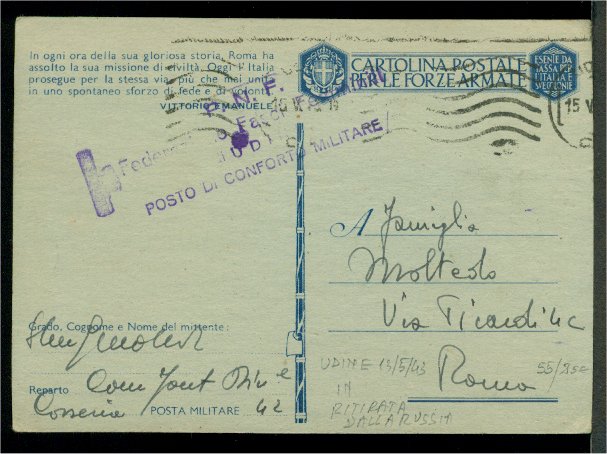 In ogni ora della sua gloriosa storia, Roma ha
assolto la sua missione di civiltà. Oggi l'Italia
prosegue per la stessa via, più che mai unita
in uno spontaneo sforzo di fede e di volontà.
VITTORIO EMANUELE
CARTOLINA POSTALE
PER LE FORZE ARMATE
ESENTE DA
TASSA PER
L'ITALIA E
SVIZZERA
P. N. F.
Federa
UDI
POSTO DI CONFORTO MILITARE
15 V
A Famiglia
Moltedo
Via Picardi 4c
Roma
Grado, Cognome e Nome del mittente:
Reparto Com Fant Div e
Cosseria POSTA MILITARE 42
UDINE 15/5/43
IN
RITIRATA
DALLA RUSSIA
55/85c